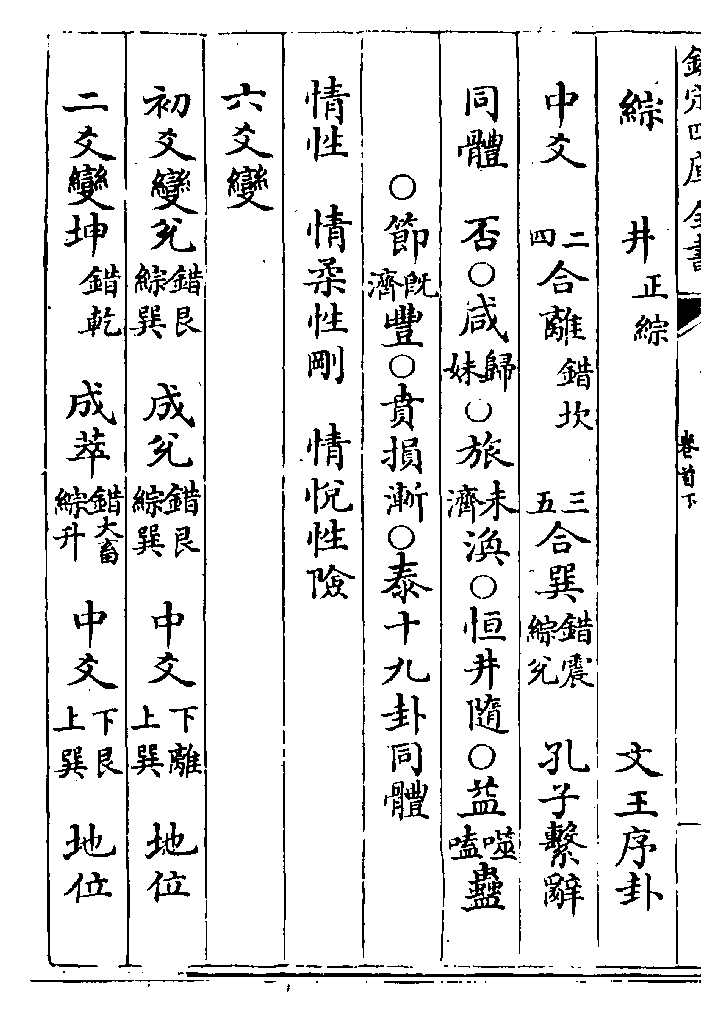 欽定四庫全書
卷首下
綜 井正綜 文王序卦
中爻 二四合離錯坎 三五合巽錯震綜兌 孔子繫辭
同體 否○咸歸妹○旅未濟渙○恒井隨○益噬嗑蠱
○節既濟豐○賁損漸○泰十九卦同體
情性 情柔性剛 情悅性險
六爻變
初爻變兌錯艮綜巽 成兌錯艮綜巽 中爻下離上巽 地位
二爻變坤錯乾 成萃錯大畜綜升 中爻下艮上巽 地位